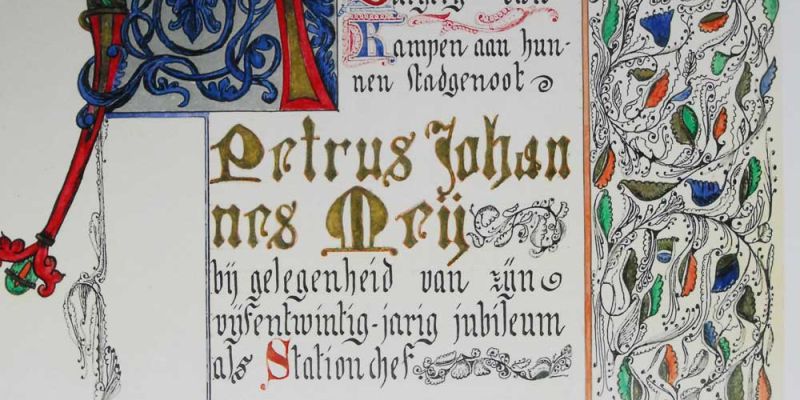 van
Kampen aan hun-
nen stadgenoot
Petrus Johan
nes Meij
bij gelegenheid van zijn
vijfentwintig-jarig jubileum
als Stationchef